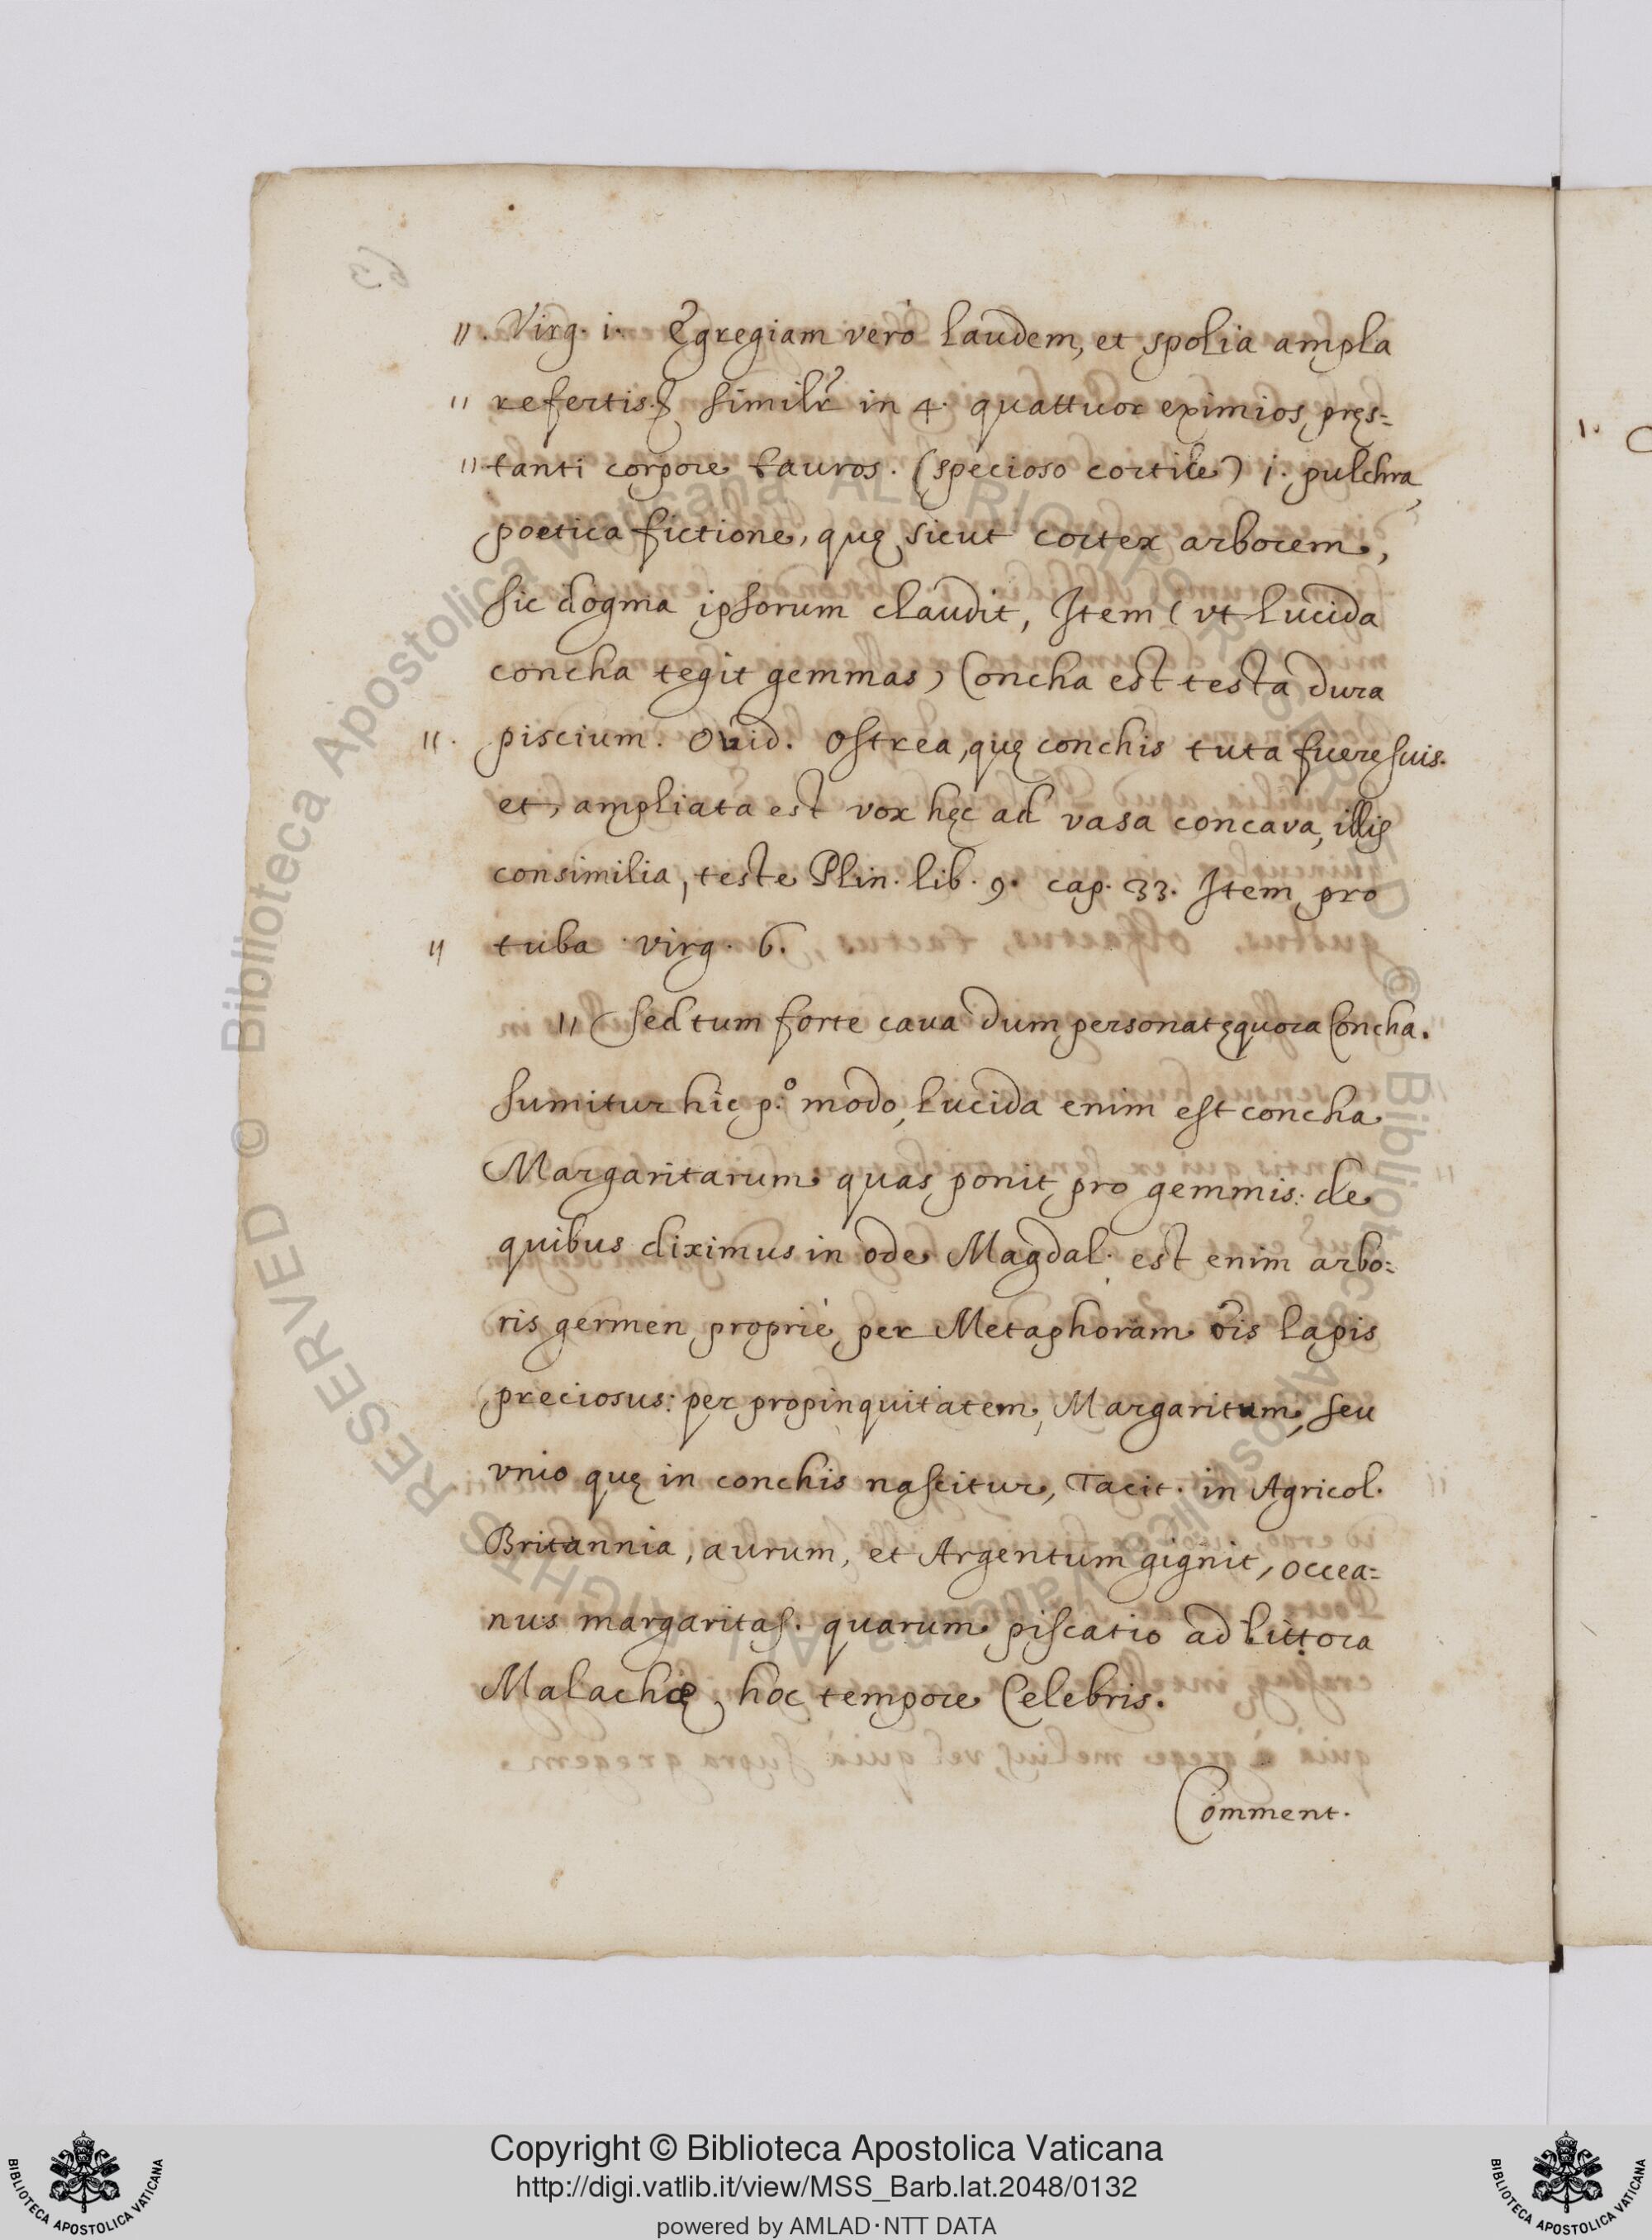 ". Virg. i. Egregiam verò laudem, et spolia ampla
" refertis. similr̃ in 4. quattuor eximios pręs=
" tanti corpore tauros. (specioso cortice) i. pulchra
poetica fictione, quę sicut cortex arborem,
sic dogma ipsorum claudit, Item (vt lucida
concha tegit gemmas) Concha est testa dura
". piscium. Ouid. Ostrea, quę conchis tuta fuere suis.
et, ampliata est vox hęc ad vasa concava, illis
consimilia, teste Plin. lib. 9. cap. 33. Item pro
" tuba virg. 6.
" Sed tum forte caua dum personat ęquora Concha.
Sumitur hic p.º modo, lucida enim est concha
Margaritarum quas ponit pro gemmis: de
quibus diximus in ode Magdal. est enim arbo=
ris germen propriè per Metaphoram õis lapis
preciosus: per propinquitatem, Margaritum, seu
vnio quę in conchis nascitur, Tacit. in Agricol.
Britannia, aurum, et Argentum gignit, occea=
nus margaritas. quarum piscatio ad littora
Malachæ, hoc tempore Celebris.
Comment.
Copyright © Biblioteca Apostolica Vaticana
http://digi.vatlib.it/view/MSS_Barb.lat.2048/0132
powered by AMLAD·NTT DATA
BIBLIOTECA APOSTOLICA VATICANA
BIBLIOTECA APOSTOLICA VATICANA